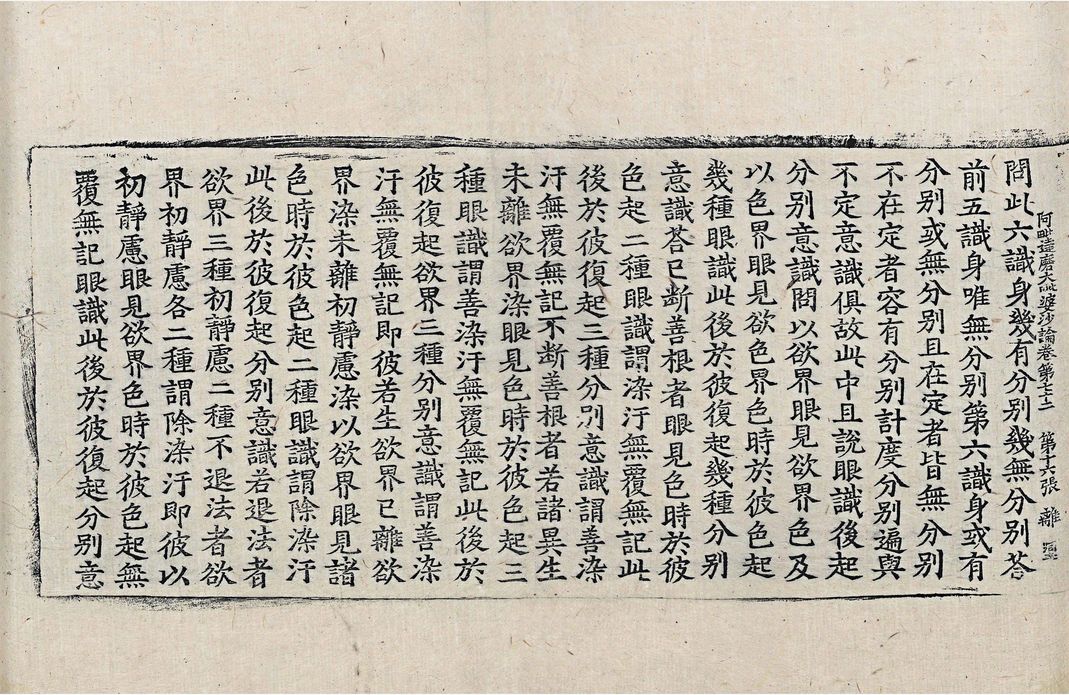 阿毗達磨大毗婆沙論卷第七十二 第十六張 離
問此六識身幾有分別幾無分別荅
前五識身唯無分別第六識身或有
分別或無分別且在定者皆無分別
不在定者容有分別計度分別遍與
不定意識俱故此中且說眼識後起
分別意識問以欲界眼見欲界色及
以色界眼見欲色界色時於彼色起
幾種眼識此後於彼復起幾種分別
意識荅已断善根者眼見色時於彼
色起二種眼識謂染汙無覆無記此
後於彼復起三種分別意識謂善染
汙無覆無記不断善根者若諸異生
未離欲界染眼見色時於彼色起三
種眼識謂善染汙無覆無記此後於
彼復起欲界三種分別意識謂善染
汙無覆無記即彼若生欲界已離欲
界染未離初靜慮染以欲界眼見諸
色時於彼色起二種眼識謂除染汙
此後於彼復起分別意識若退法者
欲界三種初靜慮二種不退法者欲
界初靜慮各二種謂除染汙即彼以
初靜慮眼見欲界色時於彼色起無
覆無記眼識此後於彼復起分別意